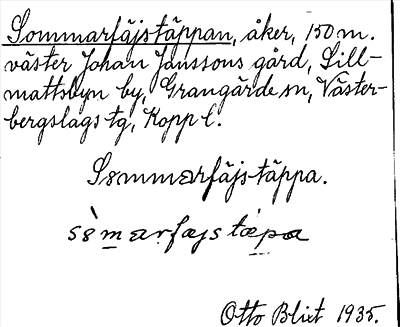 Sommarfäjstäppan, åker, 150 m.
väster Johan Janssons gård, Sill-
mattsbyn by, Grangärde sn, Väster-
bergslags tg, Kopp l.
Sommarfäjstäppa.
Otto Blixt 1935.